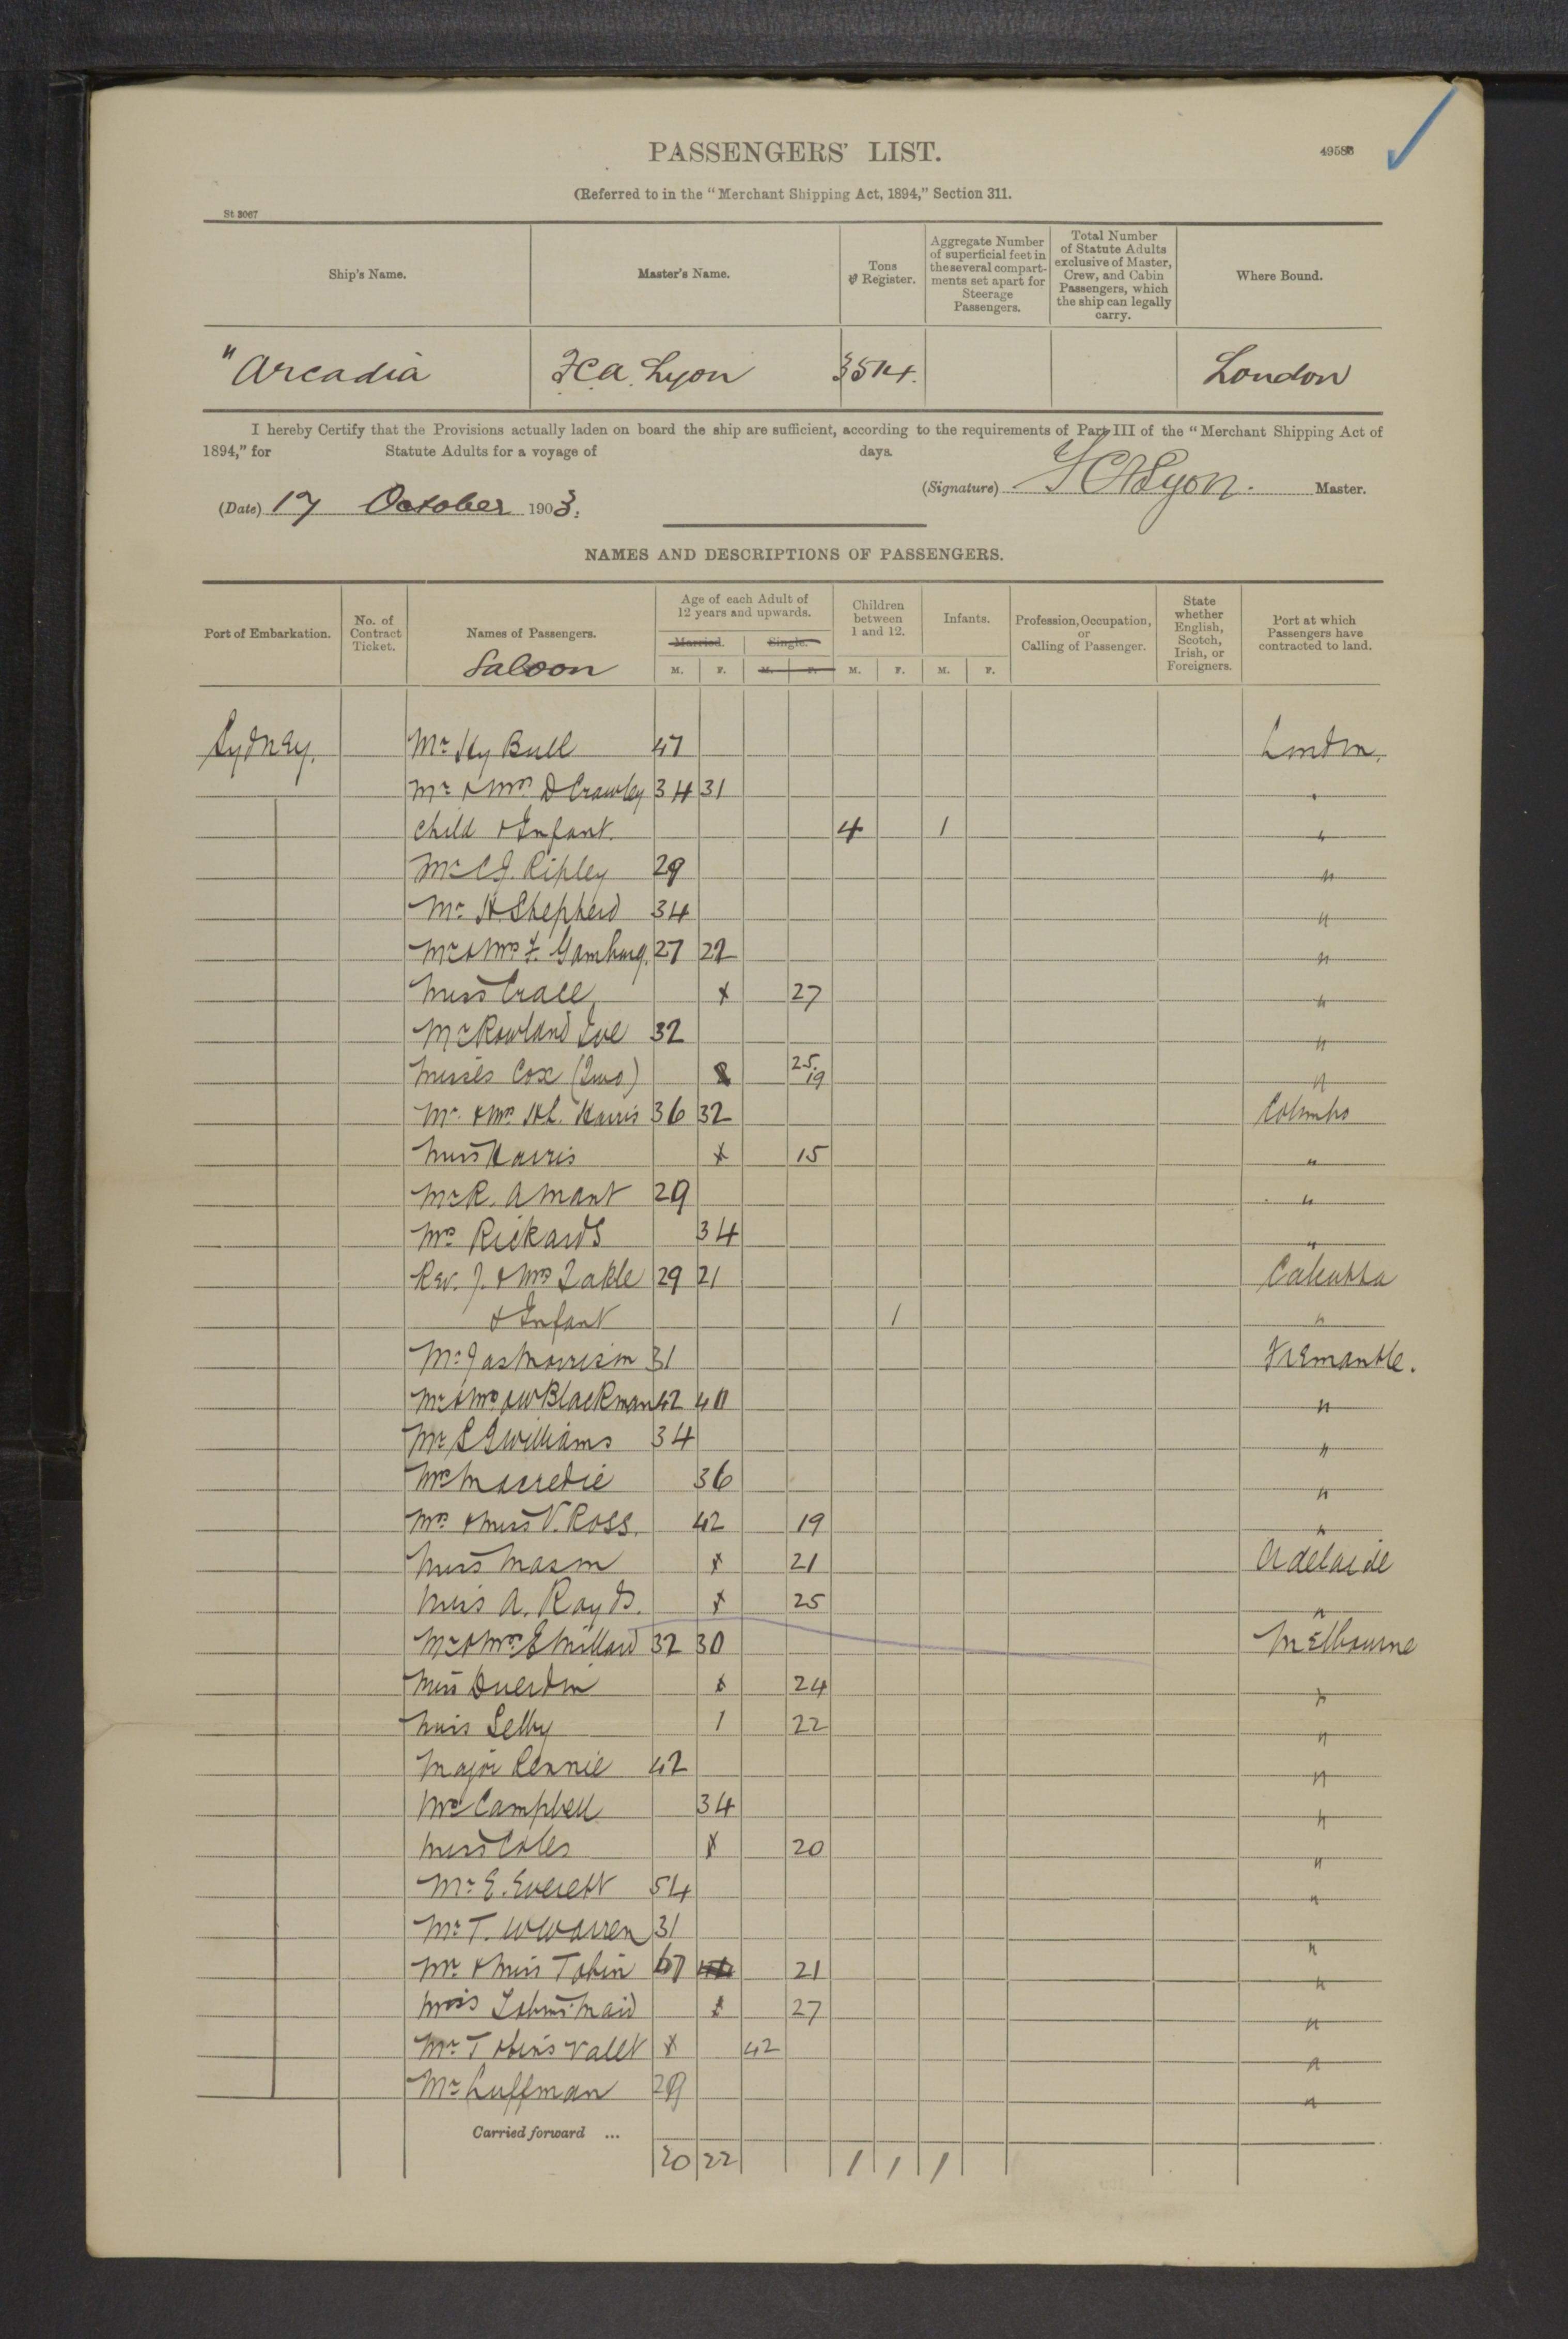 PASSENGERS' LIST.
(Referred to in the "Merchant Shipping Act, 1894," Section 311.
St 3067
Ship's Name.
Master's Name.
Tons Register.
Aggregate Number of superficial feet in the several compartments set apart for Steerage Passengers.
Total Number of Statute Adults exclusive of Master, Crew, and Cabin Passengers, which the ship can legally carry.
Where Bound.
"Arcadia F.C.A. Lyon 3514. London
I hereby Certify that the Provisions actually laden on board the ship are sufficient, according to the requirements of Part III of the "Merchant Shipping Act of
1894," for Statute Adults for a voyage of days.
(Signature) F C A Lyon. Master.
(Date) 17 October 1903.
NAMES AND DESCRIPTIONS OF PASSENGERS.
Port of Embarkation.
No. of Contract Ticket.
Names of Passengers.
Saloon
Age of each Adult of 12 years and upwards.
Married. Single.
Children between 1 and 12.
Infants.
Profession, Occupation, or Calling of Passenger.
State whether English, Scotch, Irish, or Foreigners.
Port at which Passengers have contracted to land.
M. F. M. F. M. F. M. F.
Sydney. Mr Hy Bull 47 London.
Mr & Mrs D Crawley 34 31 "
Child & Infant. 4 1 "
Mr C J. Ripley 29 "
Mr H. Shepherd 34 "
Mr & Mrs F. 27 22 "
Miss x 27 "
Mr Rowland 32 "
Misses Cox (Two) 2 25. 19 "
Mr. & Mrs H L. Harris 36 32 Colombo
Miss Harris x 15 "
Mr R. A Mant 29 "
Mrs Rickards 34 "
Rev. J. & Mrs Takle 29 21 Calcutta
& Infant 1 "
Mr Jas Morrison 31 Fremantle.
Mr & Mrs Blackman 42 40 "
Mr S G Williams 34 "
Mrs Macredie 36 "
Mrs & Miss V. Ross. 42 19 "
Miss Mason x 21 Adelaide
Miss A. Royds. x 25 "
Mr & Mrs E Millard 32 30 Melbourne
Miss Duerdin x 24 "
Miss Selby 1 22 "
Major Rennie 42 "
Mrs Campbell 34 "
Miss Coles x 20 "
Mr E. Everett 54 "
Mr T. W Warren 31 "
Mr & Miss Tobin 67 21 "
Miss Tobin's Maid x 27 "
Mr Tobin's Valet x 42 "
Mr Luffman 29 "
Carried forward ...
20 22 1 1 1